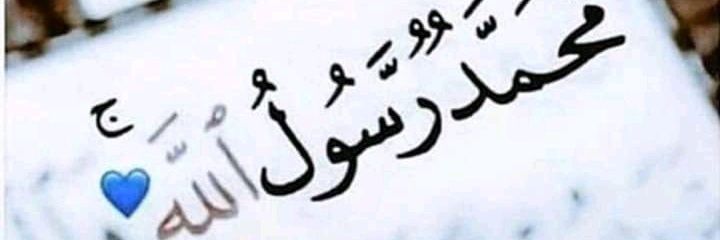 مُحَمَّدٌ رَّسُولُ اللَّهِ ۚ 💙